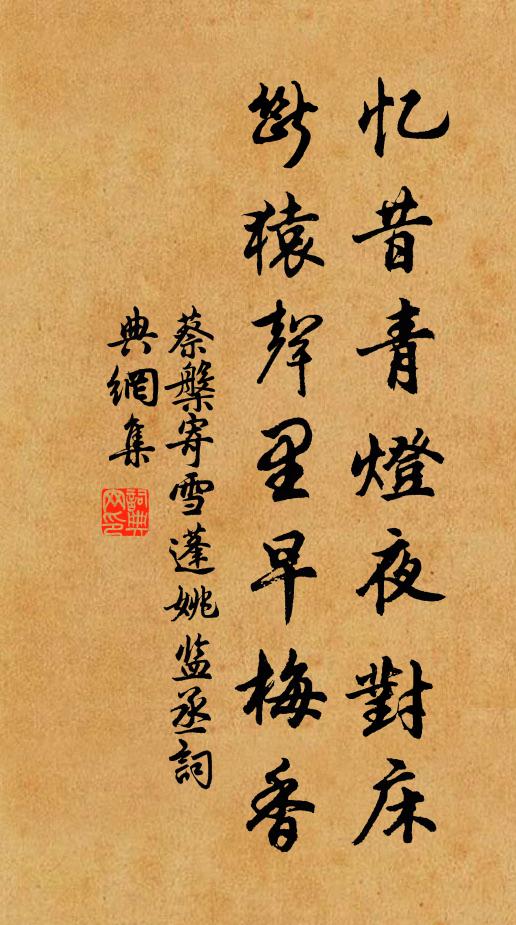 忆昔青燈夜對床
斷猿聲里早梅香
蔡槃寄雪蓬姚监丞詞
典網集
詞典网印